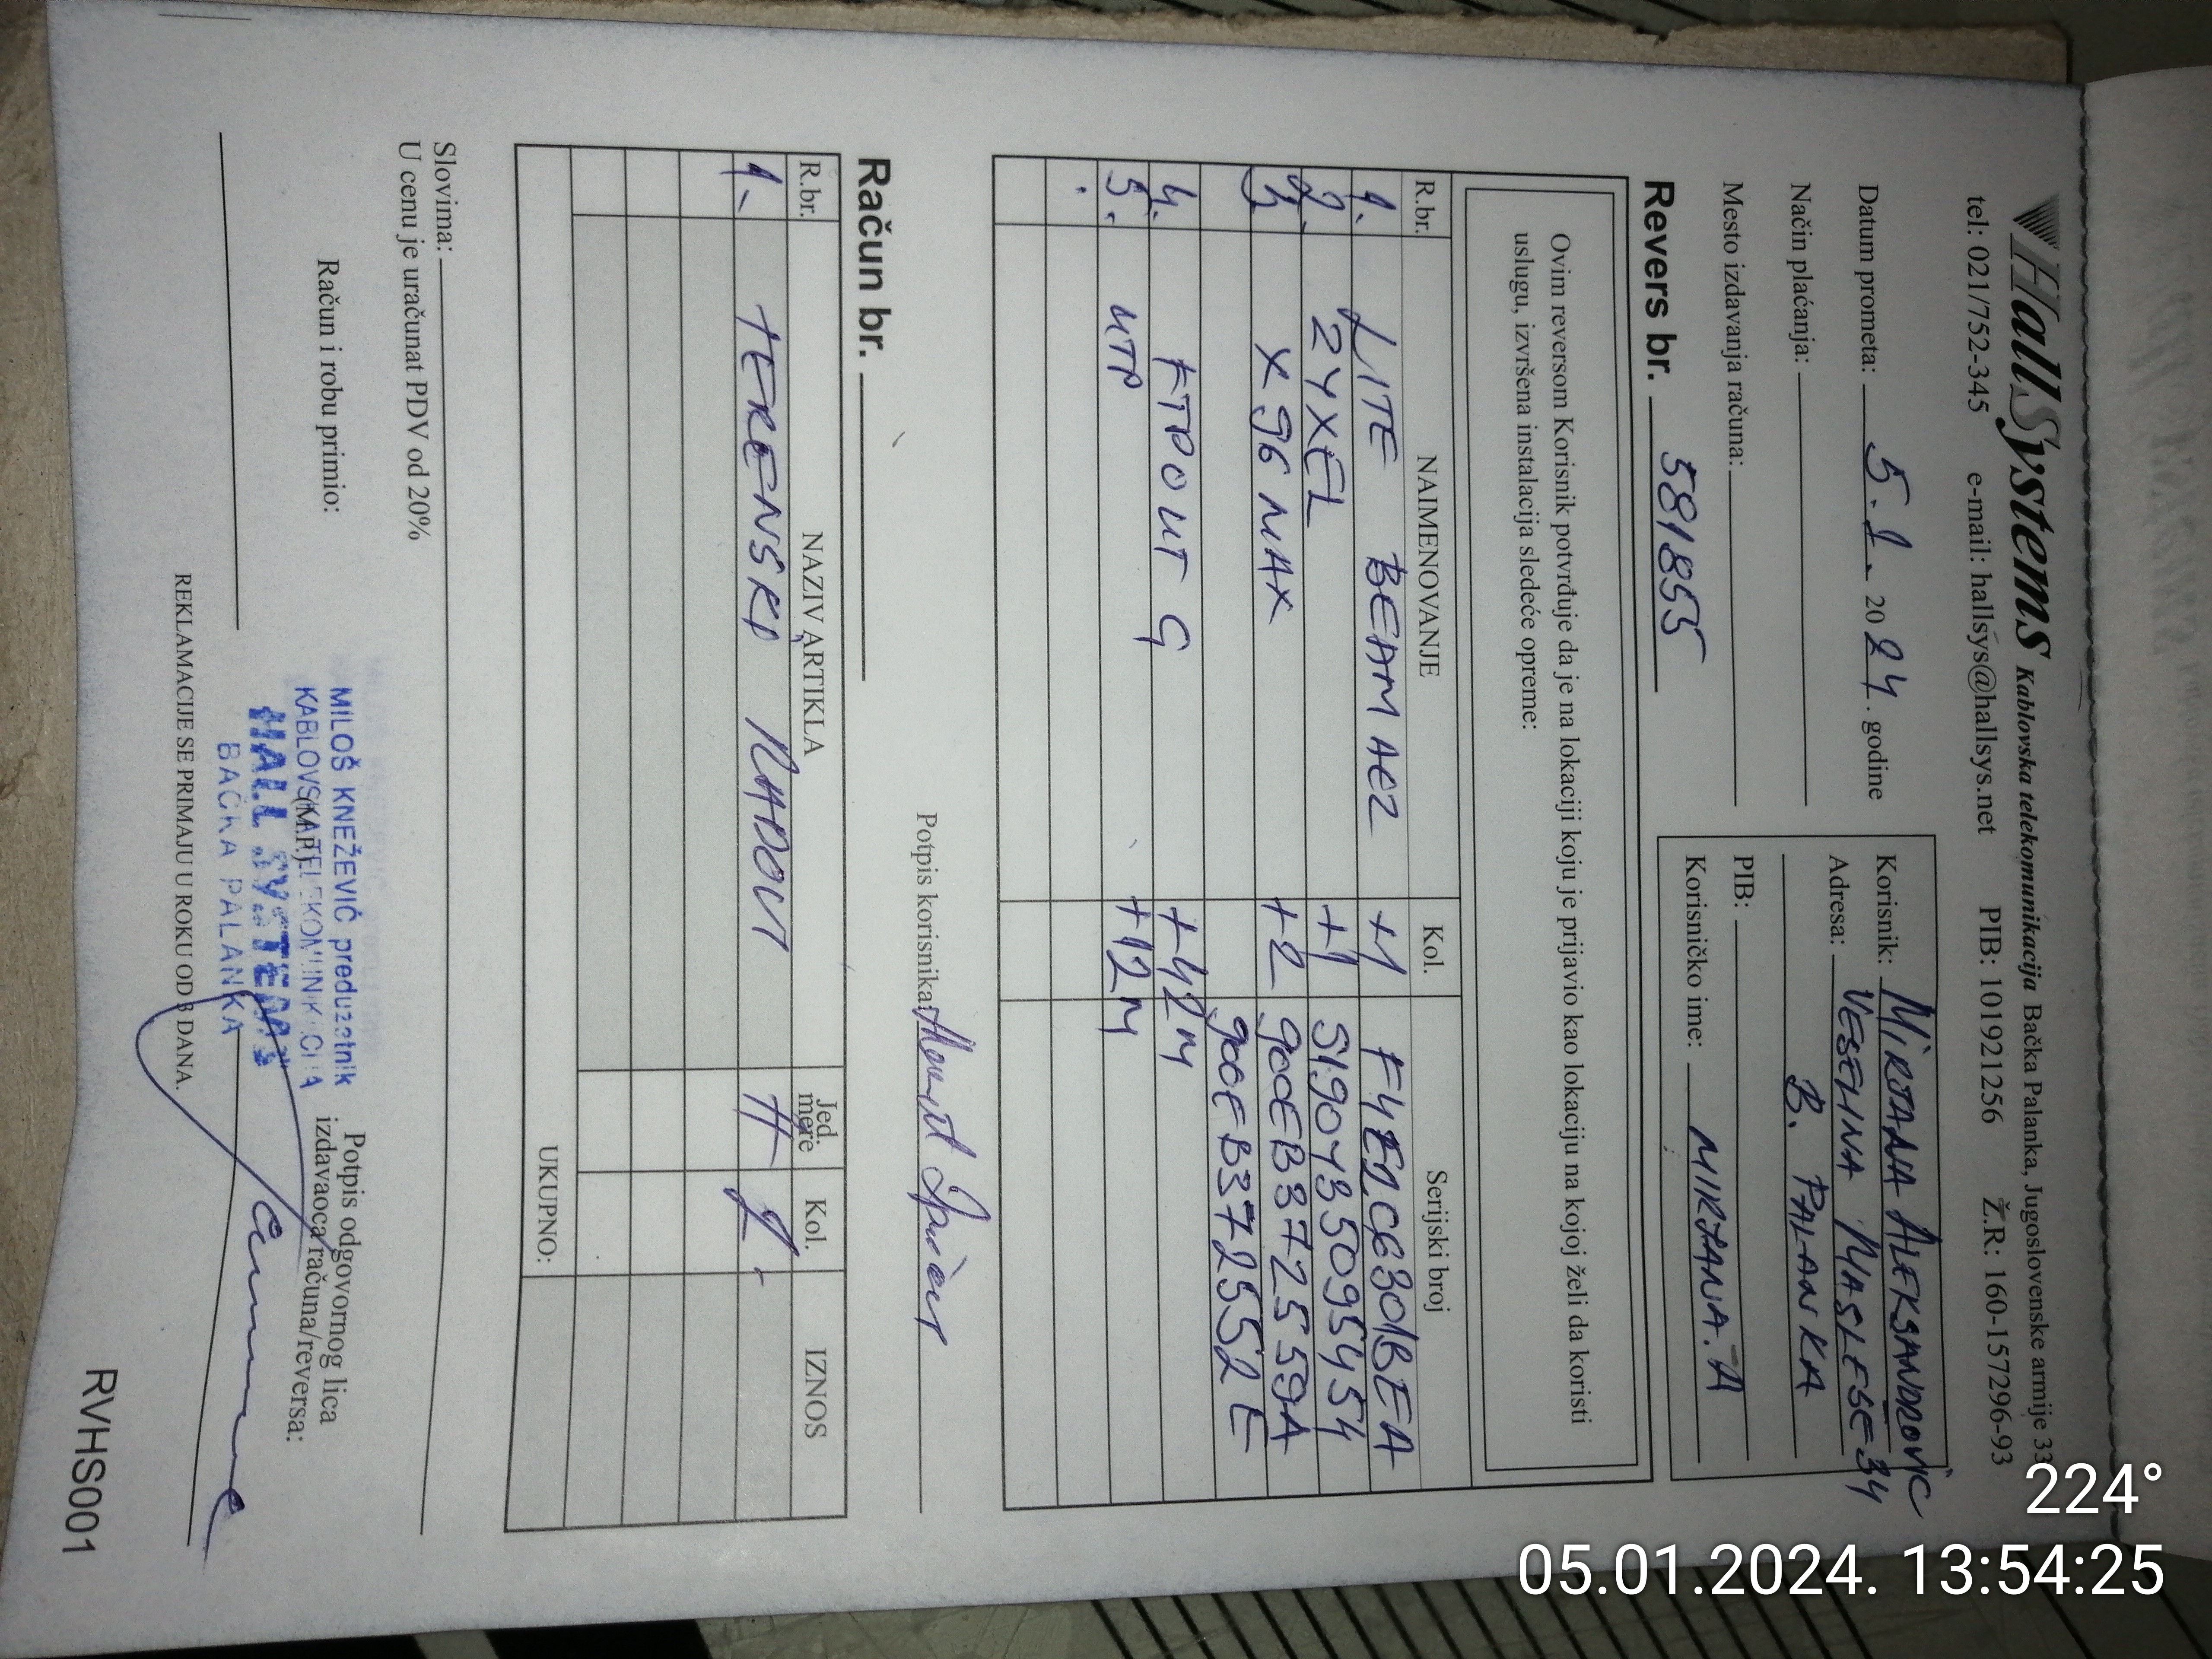 HallSystems Kablovska telekomunikacija Bačka Palanka, Jugoslovenske armije 33
tel: 021/752-345 e-mail: hallsys@hallsys.net PIB: 101921256 Ž.R: 160-157296-93
Datum prometa: 5.1. 2024. godine
Način plaćanja:
Mesto izdavanja računa:
Korisnik: MIRJANA ALEKSANDROVIC
Adresa: VESELINA MASLESE 34
B. PALANKA
PIB:
Korisničko ime: MIRJANA.A
Revers br. 581855
Ovim reversom Korisnik potvrđuje da je na lokaciji koju je prijavio kao lokaciju na kojoj želi da koristi
uslugu, izvršena instalacija sledeće opreme:
R.br. NAIMENOVANJE Kol. Serijski broj
1. LITE BEAM AC2 +1 F4E2C6301BEA
2. ZYXEL +1 S190Y35095454
3. X96 MAX +2 900EB372559A
900EB372552E
4. FTP OUT G +42M
5. UTP +12M
Potpis korisnika:
Račun br.
R.br. NAZIV ARTIKLA Jed. mere Kol. IZNOS
1. TERENSKI RADOVI H 1.
UKUPNO:
Slovima:
U cenu je uračunat PDV od 20%
Račun i robu primio:
MILOŠ KNEŽEVIĆ preduzetnik
KABLOVSKA TELEKOMUNIKACIJA
(M.P.)
HALL SYSTEMS
BAČKA PALANKA
Potpis odgovornog lica
izdavaoca računa/reversa:
REKLAMACIJE SE PRIMAJU U ROKU OD 3 DANA.
RVHS001
224°
05.01.2024. 13:54:25